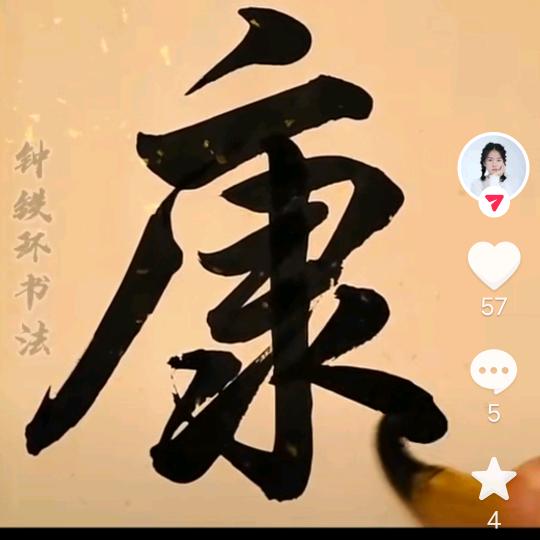 康
钟铁环书法
57
5
4